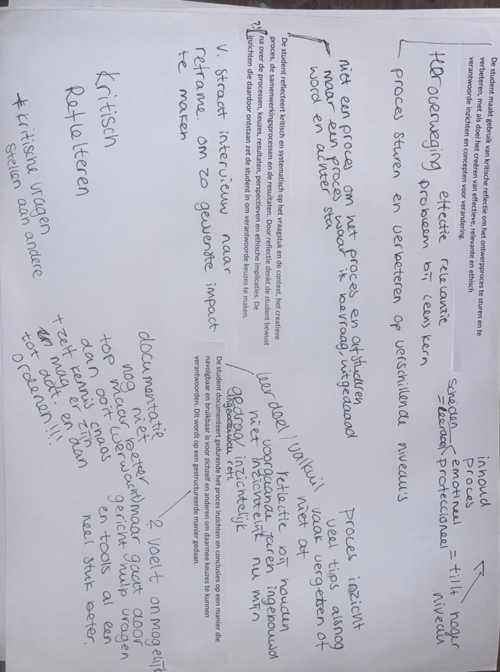 De student maakt gebruik van kritische reflectie om het ontwerpproces te sturen en te
verbeteren, met als doel het creëren van effectieve, relevante en ethisch
verantwoorde inzichten en concepten voor verandering.
Heroverweging effectie relevantie
probleem bij (een) kern
proces sturen en verbeteren op verschillende niveaus
inhoud
proces
emotineel
proteccioneel
= tillt hoger
niveau
De student reflecteert kritisch en systematisch op het vraagstuk en de context, het creatieve
proces, de samenwerkingsprocessen en de resultaten. Door reflectie denkt de student bewust
na over de processen, keuzes, resultaten, perspectieven en ethische implicaties. De
inzichten die daardoor ontstaan zet de student in om verantwoorde keuzes te maken.
niet een proces om het proces en afstuderen
maar een proces waar ik bevraag, uitgedaagd
word en achter sta
v. straat interview naar
reframe om zo gewenste impact
te maken
Kritisch
Reflecteren
* kritische vragen
stellen aan andere
proces inzicht
veel tips alsnog
vaak vergeten of
niet af
leerdoel / valkuil
reflectie bij houden
voorgaande jaren ingebouwd
niet inzichtelijk nu mijn
gedrag inzichtelijk
De student documenteert gedurende het proces inzichten en conclusies op een manier die
navolgbaar en bruikbaar is voor zichzelf en anderen om daarmee keuzes te kunnen
verantwoorden. Dit wordt op een gestructureerde manier gedaan.
documentatie
nog niet
top maar
dan ooit
+ zelf kennis
mag er zijn
tot dat. en dan
ordenen!!!
? voelt onmogelijk
maar gaat door
gericht hulp vragen
en tools al een
heel stuk beter.